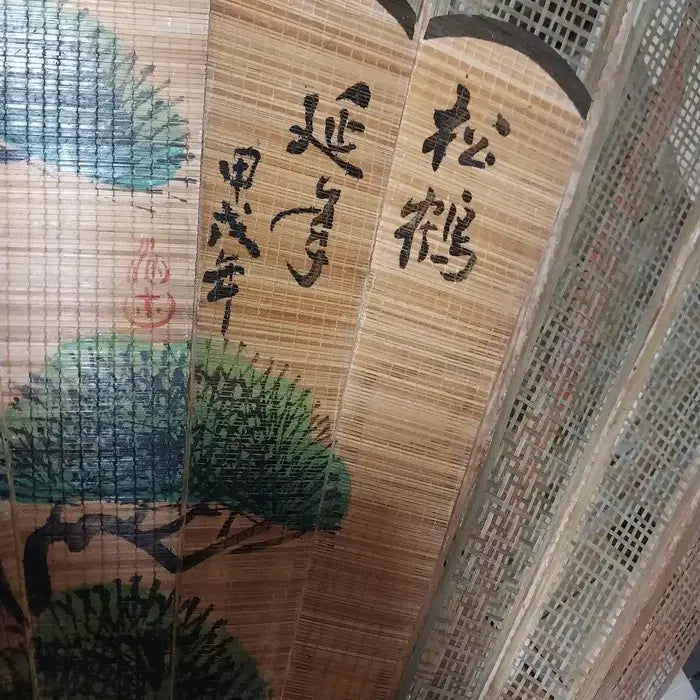 松鹤
延年
甲戌年